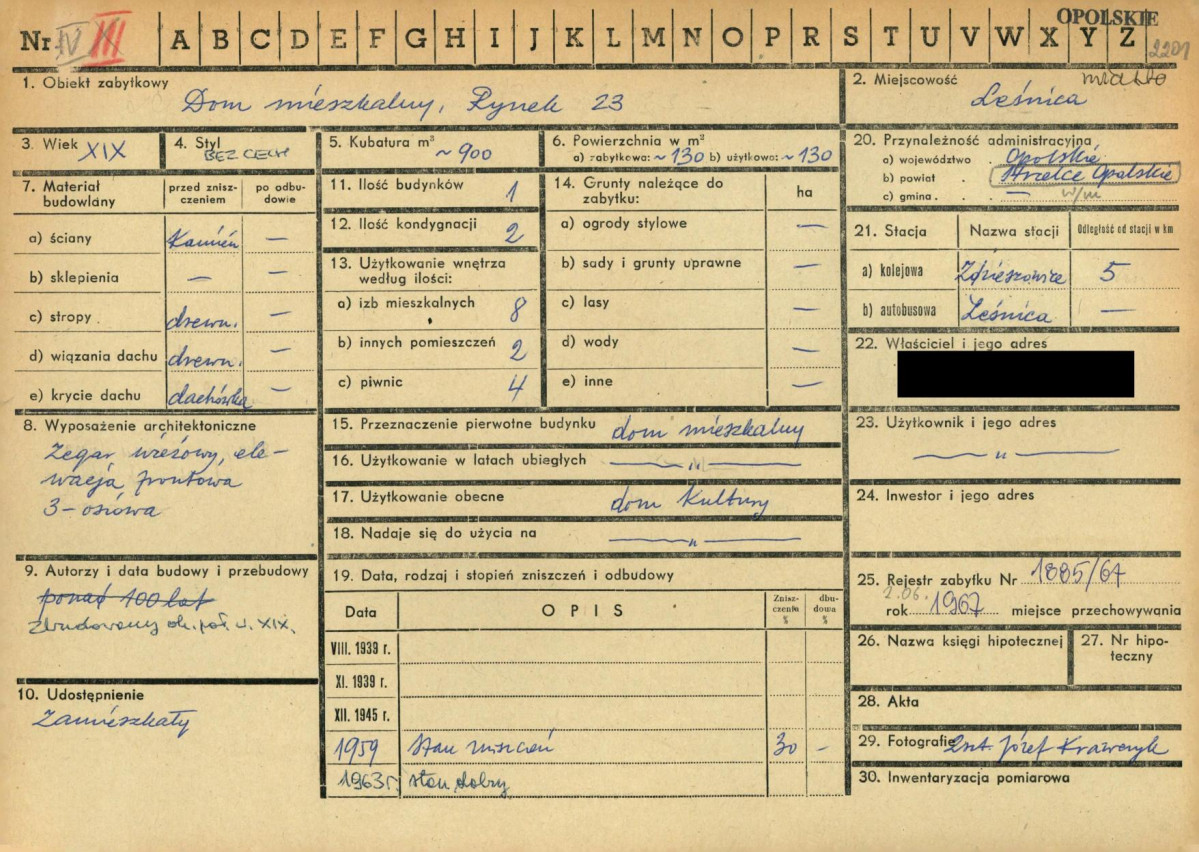 OPOLSKIE
Nr IV III A B C D E F G H I J K L M N O P R S T U V W X Y Z
2201
1. Obiekt zabytkowy
Dom mieszkalny, Rynek 23
2. Miejscowość miasto
Leśnica
3. Wiek XIX
4. Styl BEZ CECH
5. Kubatura m³ ~ 900
6. Powierzchnia w m²
a) zabytkowa: ~130 b) użytkowa: ~130
20. Przynależność administracyjna
a) województwo . Opolskie
b) powiat . Strzelce Opolskie
c) gmina . . — w/m
7. Materiał budowlany
przed zniszczeniem
po odbudowie
a) ściany kamień —
b) sklepienia — —
c) stropy drewn. —
d) wiązania dachu drewn. —
e) krycie dachu dachówka —
11. Ilość budynków 1
12. Ilość kondygnacji 2
13. Użytkowanie wnętrza
według ilości:
a) izb mieszkalnych 8
b) innych pomieszczeń 2
c) piwnic 4
14. Grunty należące do
zabytku:
ha
a) ogrody stylowe —
b) sady i grunty uprawne —
c) lasy —
d) wody —
e) inne —
21. Stacja Nazwa stacji Odległość od stacji w km
a) kolejowa Zdzieszowice 5
b) autobusowa Leśnica —
22. Właściciel i jego adres
8. Wyposażenie architektoniczne
Zegar wieżowy, ele-
wacja frontowa
3-osiowa
15. Przeznaczenie pierwotne budynku dom mieszkalny
16. Użytkowanie w latach ubiegłych — " —
17. Użytkowanie obecne dom Kultury
18. Nadaje się do użycia na — " —
23. Użytkownik i jego adres
— " —
24. Inwestor i jego adres
9. Autorzy i data budowy i przebudowy
ponad 100 lat
zbudowany ok. poł. w. XIX.
10. Udostępnienie
Zamieszkały
19. Data, rodzaj i stopień zniszczeń i odbudowy
Data OPIS Zniszczenia % dbudowa %
VIII. 1939 r.
XI. 1939 r.
XII. 1945 r.
1959 Stan zniszczeń 30 –
1963 r. stan dobry
25. Rejestr zabytku Nr 1885/67
2.06.
rok 1967 miejsce przechowywania
26. Nazwa księgi hipotecznej
27. Nr hipo-
teczny
28. Akta
29. Fotografie Józef Krawczyk
30. Inwentaryzacja pomiarowa